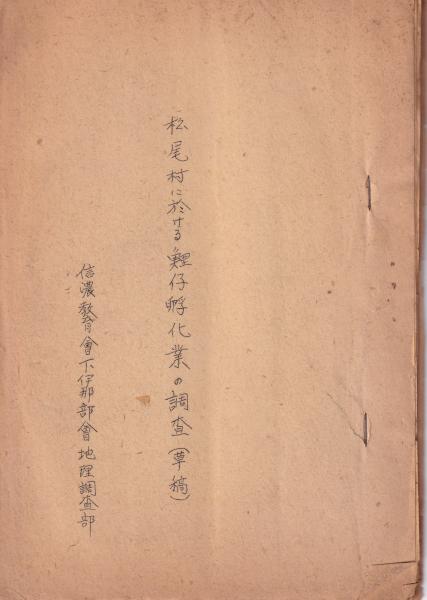 松尾村に於ける鯉仔孵化業の調査(草稿)
信濃教育會下伊那部會地理調査部